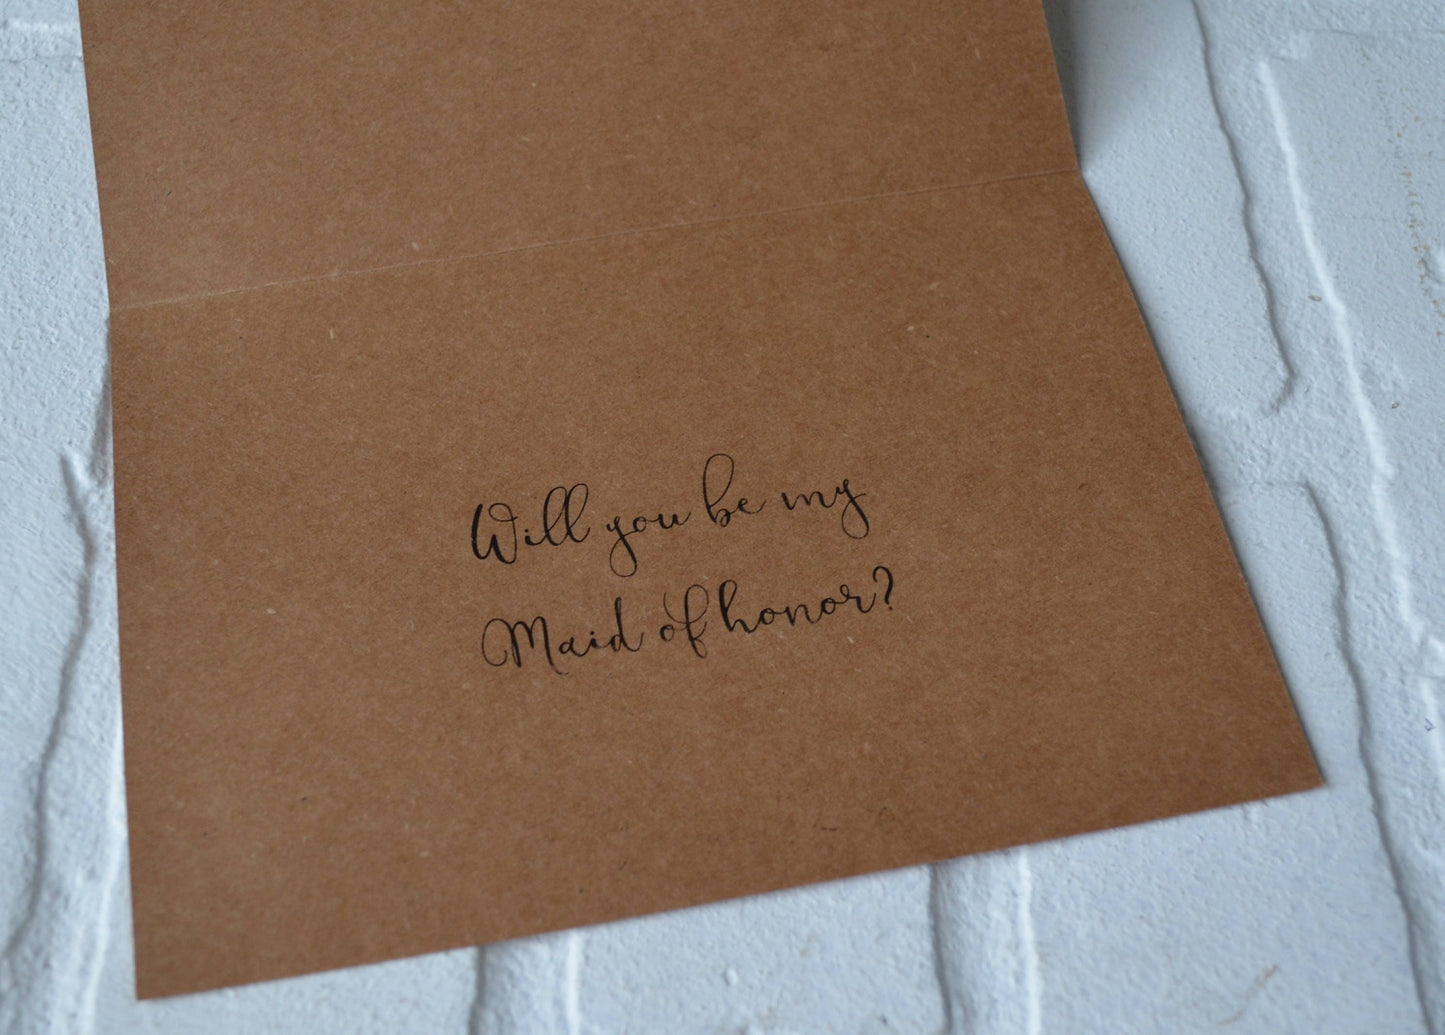 Will you be my
Maid of honor?